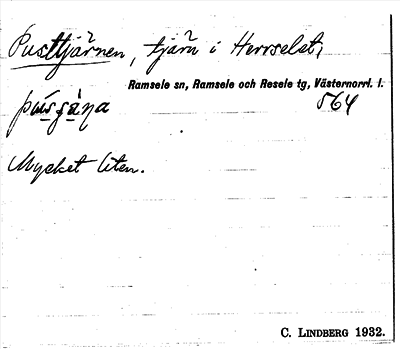 Pusttjärnen, tjärn i Herrselet,
Ramsele sn, Ramsele och Resele tg, Västernorrl. l.
564
Mycket liten.
C. LINDBERG 1932.